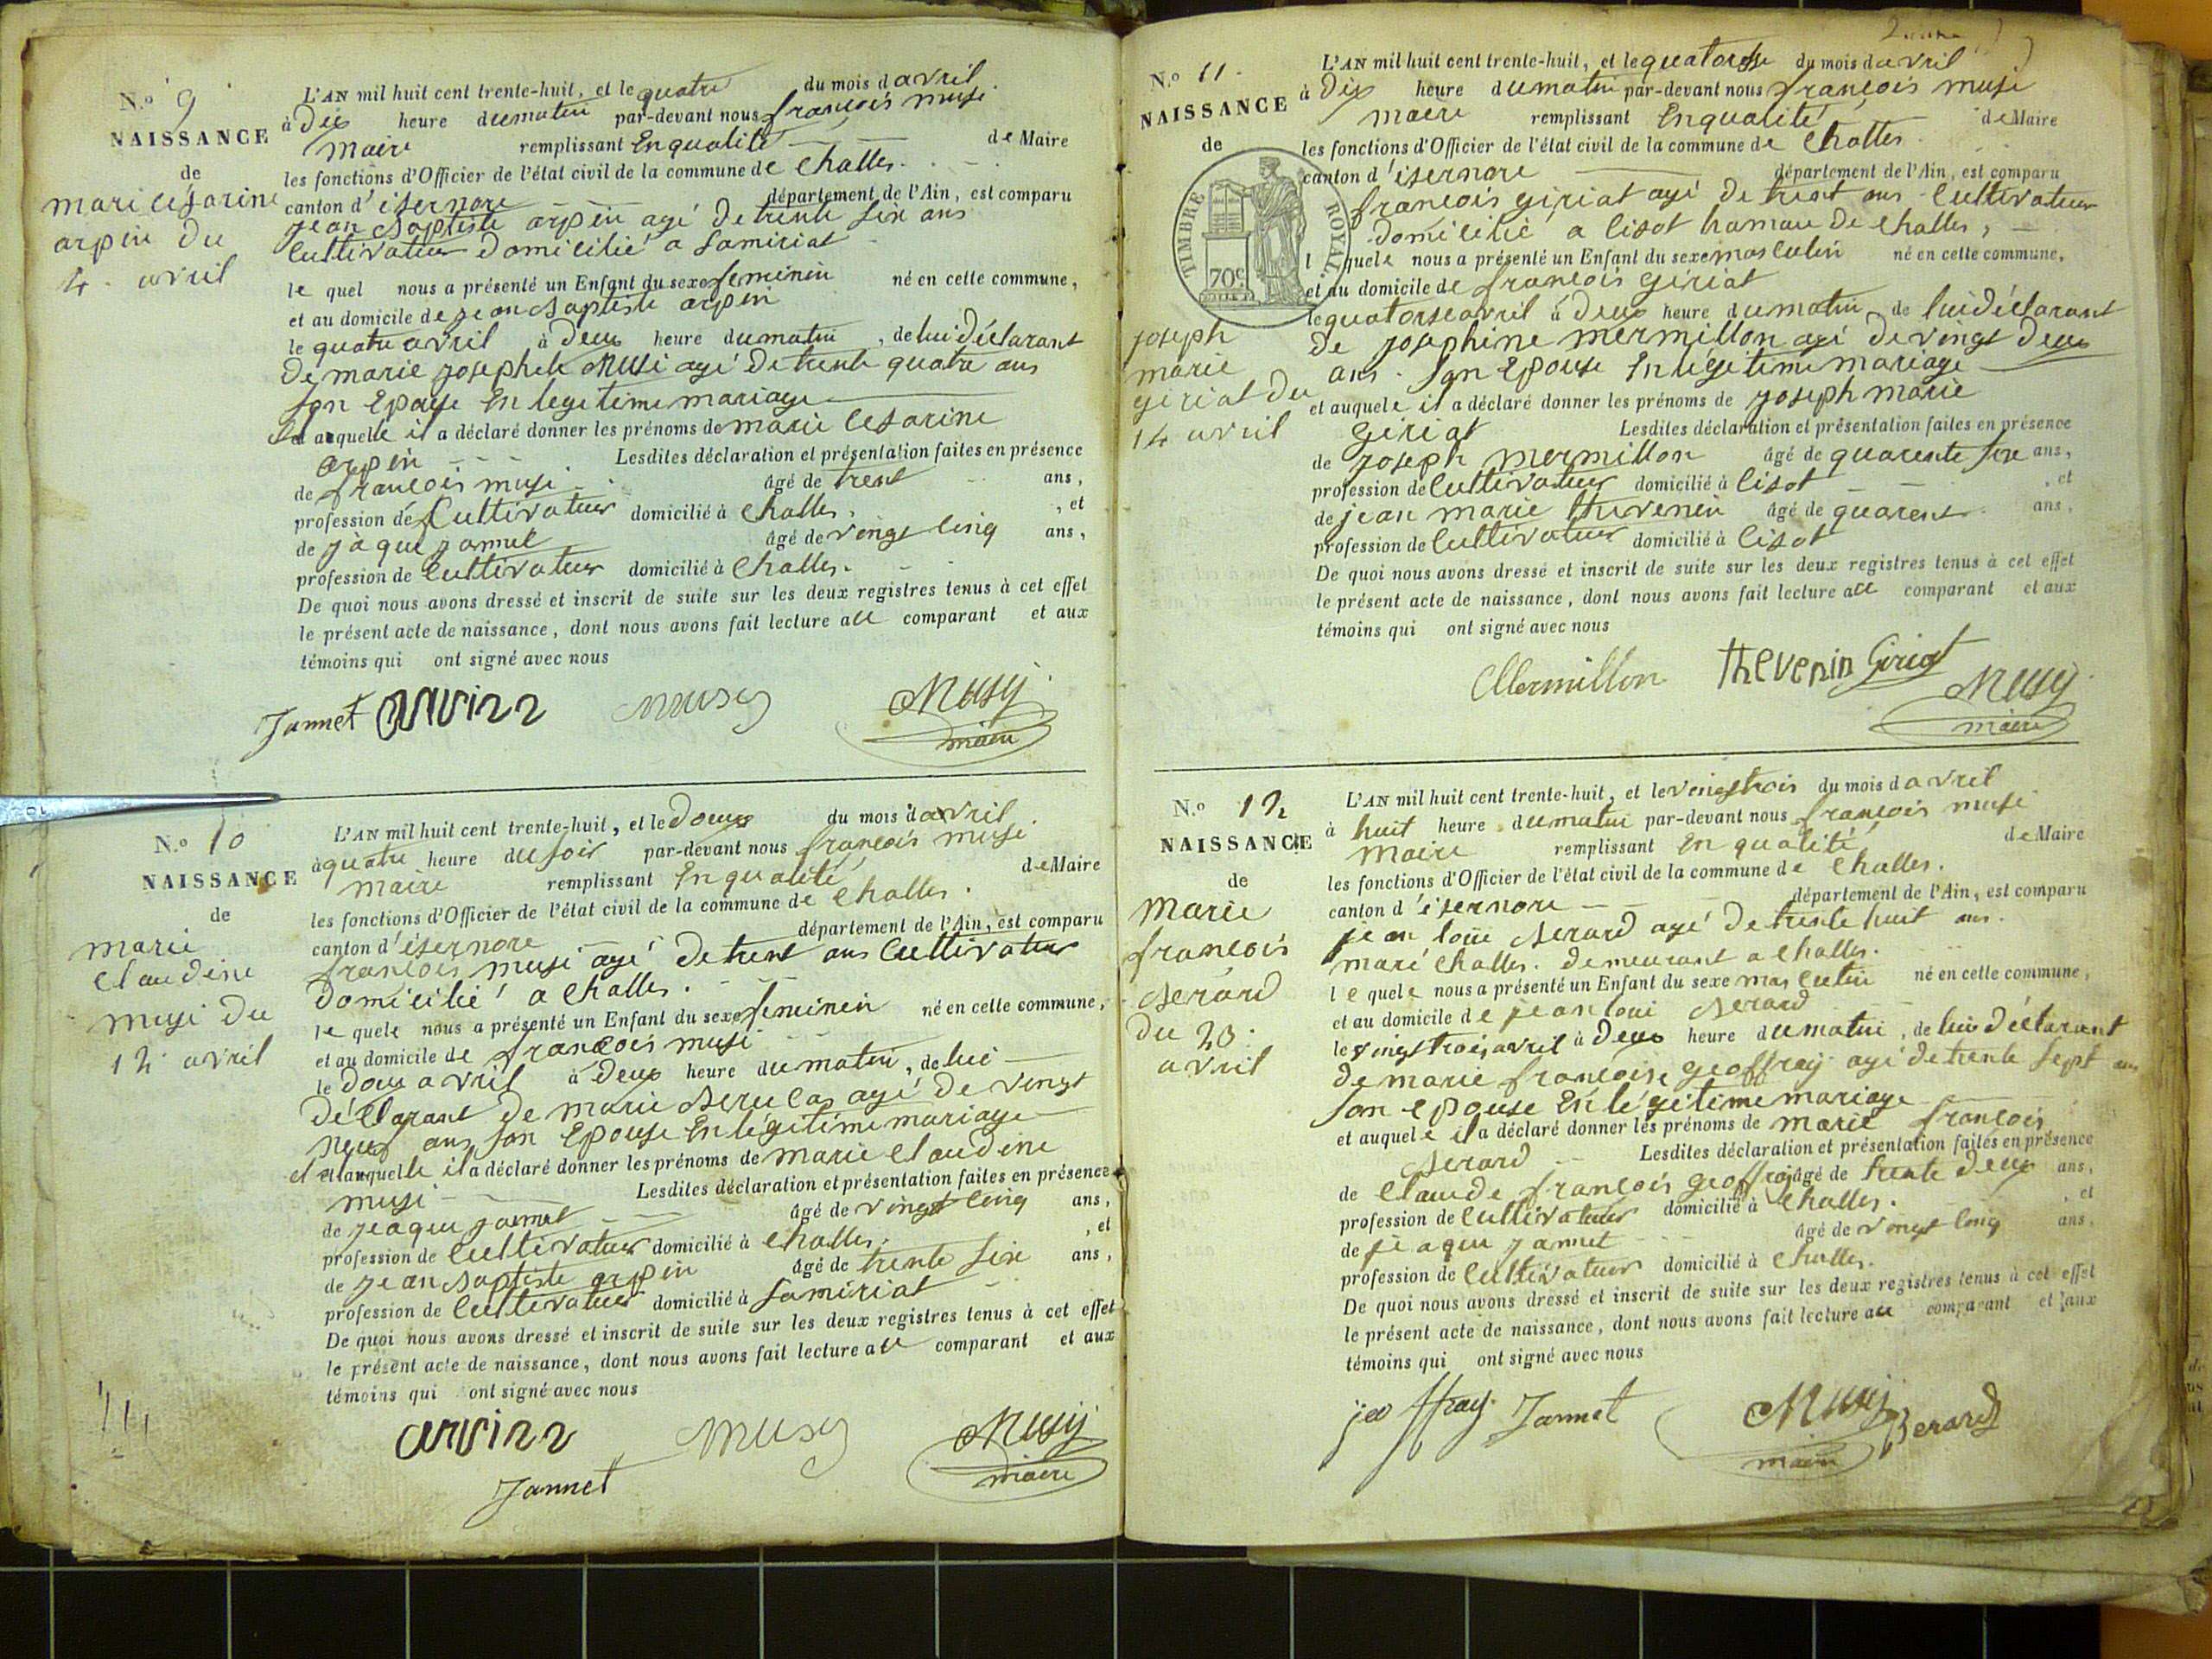 N.o 9
NAISSANCE
de
mari césarine
arpin du
4 avril
L'AN mil huit cent trente-huit, et le quatre du mois d avril
à dix heure du matin par-devant nous françois musi
maire remplissant En qualité de Maire
les fonctions d'Officier de l'état civil de la commune de Challes.
canton d'isernore département de l'Ain, est comparu
jean Baptiste arpin agé de trente six ans
Cultivateur domicilié a Samiriat
le quel nous a présenté un Enfant du sexe feminin né en cette commune,
et au domicile de jean Baptiste arpin
le quatre avril à deux heure du matin, de lui déclarant
de marie josephete Musi agé de trente quatre ans
son Epouse En legetime mariage
et auquelle il a déclaré donner les prénoms de marie Cesarine
arpin Lesdites déclaration et présentation faites en présence
de françois musi âgé de trent ans,
profession de Cultivateur domicilié à Challes, et
de jàque jannet âgé de vingt Cinq ans,
profession de Cultivateur domicilié à Challes.
De quoi nous avons dressé et inscrit de suite sur les deux registres tenus à cet effet
le présent acte de naissance, dont nous avons fait lecture au comparant et aux
témoins qui ont signé avec nous
Jannet musy Musy
maire
N.o 10
NAISSANCE
de
marie
Claudine
musi du
12 avril
L'AN mil huit cent trente-huit, et le douze du mois d'avril
à quatre heure du soir par-devant nous françois musi
maire remplissant En qualité de Maire
les fonctions d'Officier de l'état civil de la commune de Challes.
canton d'isernore département de l'Ain, est comparu
françois musi agé de trent ans Cultivateur
domicilié a Challes.
le quele nous a présenté un Enfant du sexe feminin né en cette commune,
et au domicile de françois musi
le douz avril à deux heure du matin, de lui
déclarant de marie Berulas agé de vingt
neuf ans son Epouse En légitime mariage
et auquelle il a déclaré donner les prénoms de marie Claudine
musi Lesdites déclaration et présentation faites en présence
de jeaque jannet âgé de vingt cinq ans,
profession de Cultivateur domicilié à Challes, et
de jean Baptiste arpin âgé de trente six ans,
profession de Cultivateur domicilié à Samiriat
De quoi nous avons dressé et inscrit de suite sur les deux registres tenus à cet effet
le présent acte de naissance, dont nous avons fait lecture au comparant et aux
témoins qui ont signé avec nous
musy Musy
maire
Jannet
N.o 11.
NAISSANCE
de
TIMBRE ROYAL.
70c.
joseph
marie
giriat du
14 avril
L'AN mil huit cent trente-huit, et le quatorse du mois d avril
à dix heure du matin par-devant nous françois musi
maire remplissant En qualité de Maire
les fonctions d'Officier de l'état civil de la commune de Challes
canton d'isernore département de l'Ain, est comparu
françois giriat agé de trent ans Cultivateur
domicilié a lisot hamau de Challes,
l quele nous a présenté un Enfant du sexe masculin né en cette commune,
et au domicile de françois giriat
le quatorse avril à deux heure du matin, de lui déclarant
de josephine mermillon agé de vingt deux
ans son Epouse En légetime mariage
et auquele il a déclaré donner les prénoms de joseph marie
Giriat Lesdites déclaration et présentation faites en présence
de joseph mermillon âgé de quarente sixe ans,
profession de Cultivateur domicilié à lisot, et
de jean marie thevenin âgé de quarent ans,
profession de Cultivateur domicilié à lisot
De quoi nous avons dressé et inscrit de suite sur les deux registres tenus à cet effet
le présent acte de naissance, dont nous avons fait lecture au comparant et aux
témoins qui ont signé avec nous
Mermillon thevenin Giriat Musy
maire
N.o 12
NAISSANCE
de
Marie
françois
Berard
du 23.
avril
L'AN mil huit cent trente-huit, et le vingt trois du mois d avril
à huit heure du matin par-devant nous françois musi
Maire remplissant En qualité de Maire
les fonctions d'Officier de l'état civil de la commune de Challes.
canton d'isernore département de l'Ain, est comparu
jean loui Berard agé de trente huit ans.
maré Challes. demeurant a Challes.
le quele nous a présenté un Enfant du sexe masculin né en cette commune,
et au domicile de jean loui Berard
le vingt trois avril à deux heure du matin, de lui déclarant
de marie françoise geoffray agé de trente sept ans
son epouse En légitime mariage
et auquele il a déclaré donner les prénoms de marie françois
Berard Lesdites déclaration et présentation faites en présence
de Claude françois geoffroj âgé de trente deux ans,
profession de Cultivateur domicilié à Challes, et
de jeaque jannet âgé de vingt cinq ans,
profession de Cultivateur domicilié à Challes.
De quoi nous avons dressé et inscrit de suite sur les deux registres tenus à cet effet
le présent acte de naissance, dont nous avons fait lecture au comparant et aux
témoins qui ont signé avec nous
jeoffray Jannet Musy Berard
maire